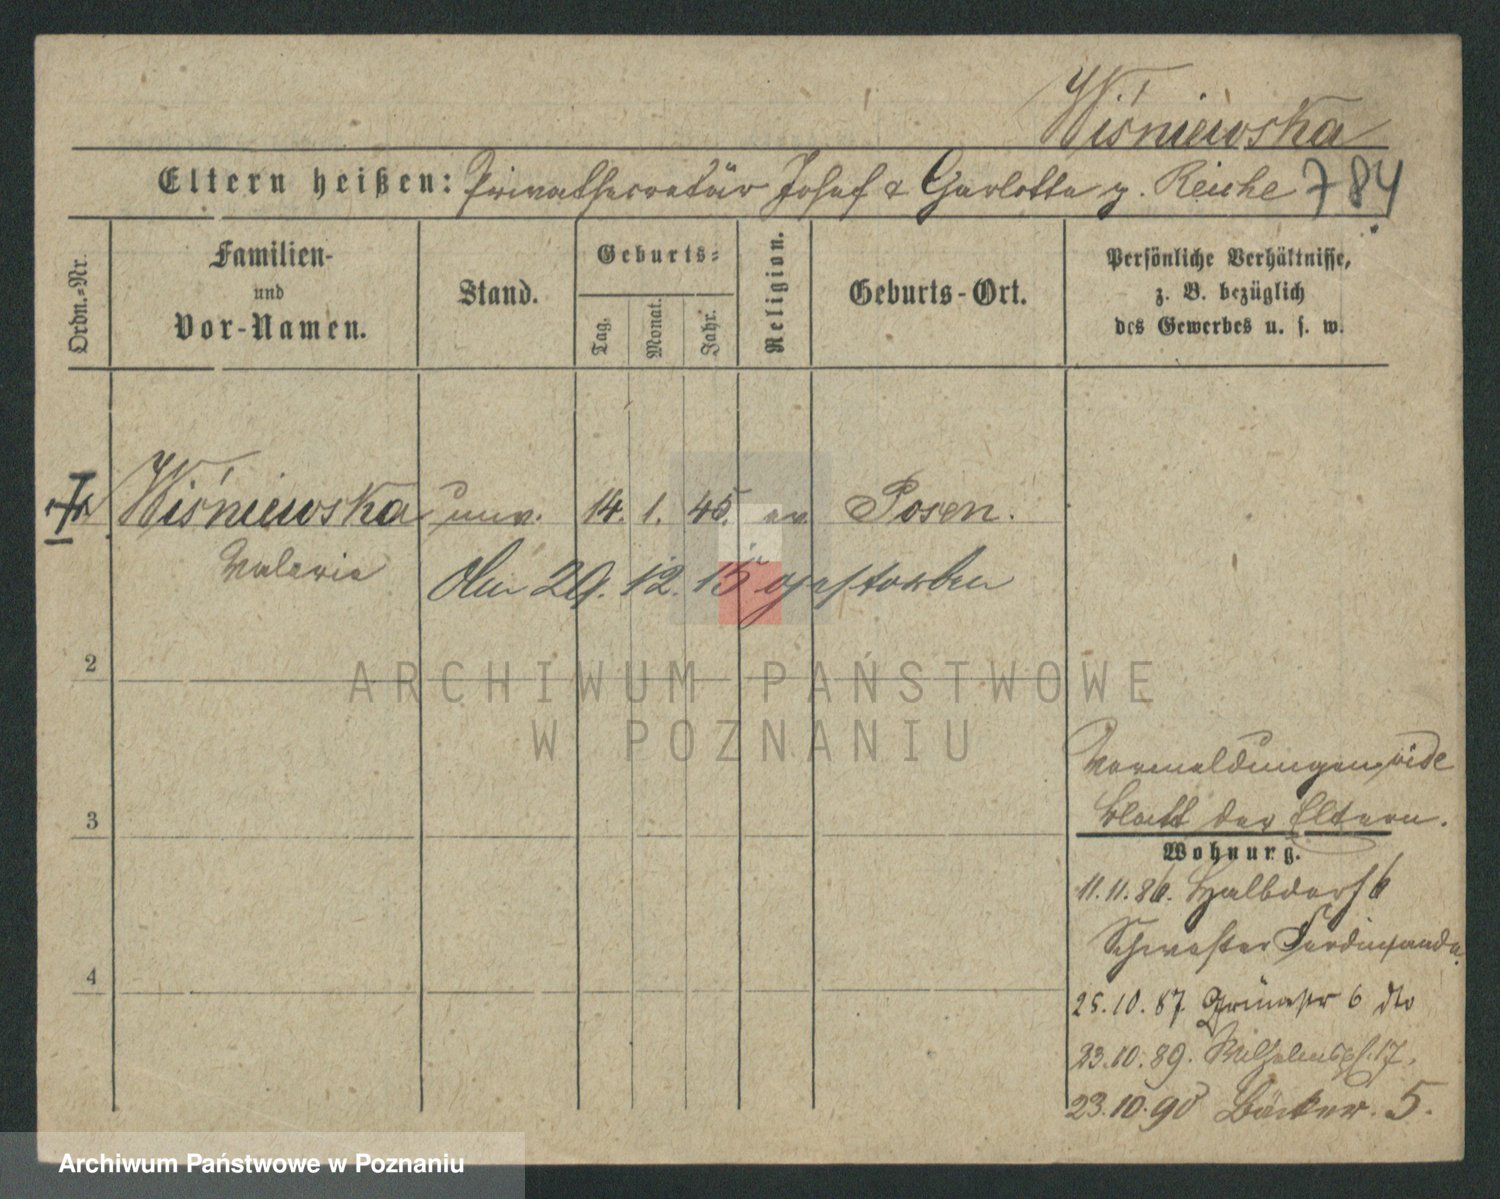 Wiśniewska
Eltern heißen: Privatsecretär Josef & Charlotte g. Reiche 784
Ordn.-Nr.
Familien-
und
Vor-Namen.
Stand.
Geburts-
Tag.
Monat.
Jahr.
Religion.
Geburts-Ort.
Persönliche Verhältnisse,
z. B. bezüglich
des Gewerbes u. s. w.
Wiśniewska unv. 14. 1. 45. ev Posen.
Valerie
Den 29. 12. 15 gestorben
2
ARCHIWUM PAŃSTWOWE
W POZNANIU
3
4
Vormeldungen vide
Blatt der Eltern.
Wohnung.
11.11.86. Halbdorf 6
Schwester Ferdinande.
25.10.87 Grünestr 6 dto
23.10.89. Wilhelmspl. 17.
23.10.90 Bäcker. 5.
Archiwum Państwowe w Poznaniu